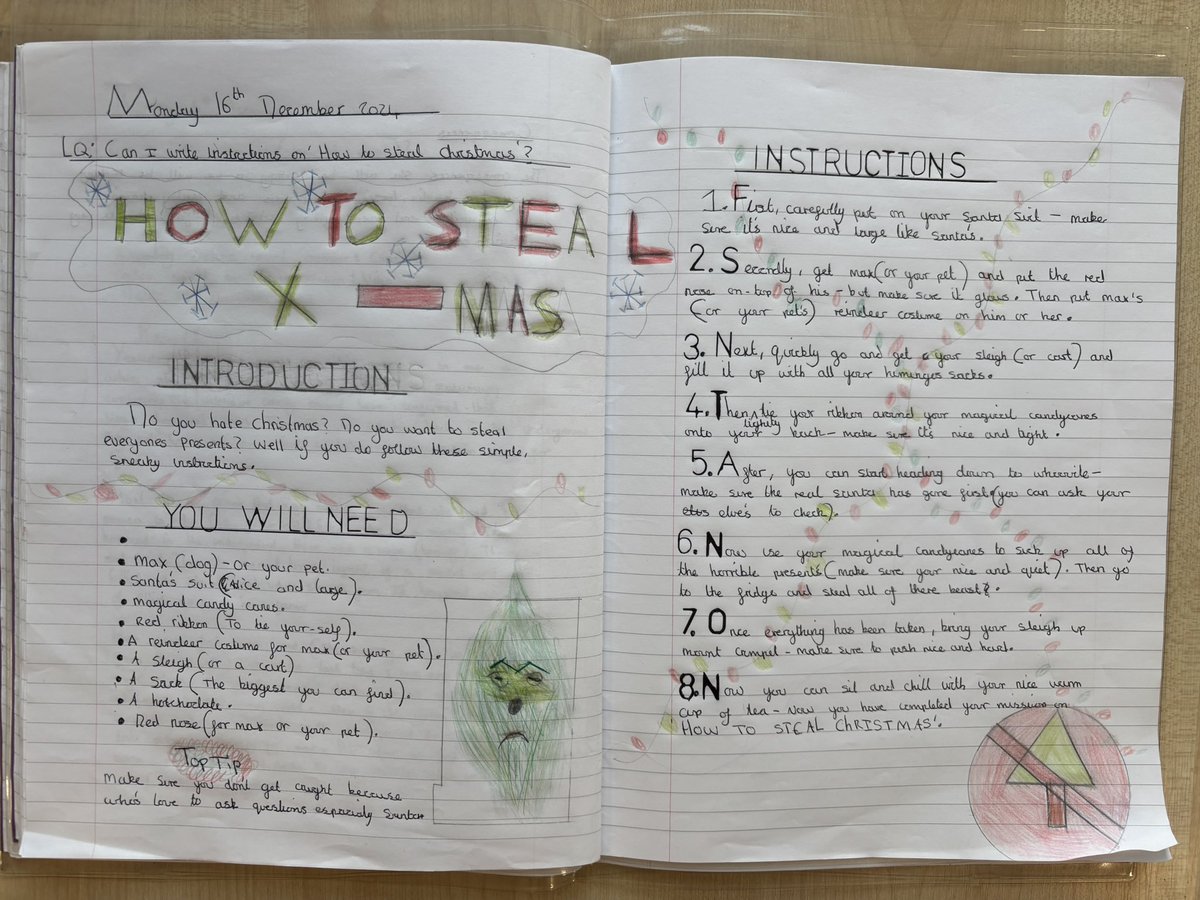 Monday 16th December 2024
LQ: Can I write instructions on 'How to steal Christmas'?
HOW TO STEAL
X - MAS
INTRODUCTION
Do you hate Christmas? Do you want to steal
everyones presents? Well if you do follow these simple,
sneaky instructions.
YOU WILL NEED
• Max (dog) - or your pet.
• Santa's suit (Nice and large).
• magical candy canes.
• Red ribbon (To tie your-self).
• A reindeer costume for max (or your pet).
• A sleigh (or a cart)
• A Sack (The biggest you can find).
• A hotchoclate.
• Red nose (for max or your pet).
Top Tip
Make sure you don't get caught because
who's love to ask questions espacialy Santa.
INSTRUCTIONS
1. First, carefully put on your Santa suit - make
sure it's nice and large like santa's.
2. Secondly, get max (or your pet) and put the red
nose on-top of his - but make sure it glows. Then put max's
(or your pet's) reindeer costume on him or her.
3. Next, quickly go and get your sleigh (or cart) and
fill it up with all your humunges sacks.
4. Then tightly tie your ribbon around your magical candycanes
onto your back - make sure it's nice and tight.
5. After, you can start heading down to whoville -
make sure the real santa has gone first (you can ask your
elve's to check).
6. Now use your magical candycanes to suck up all of
the horrible presents (make sure your nice and quiet). Then go
to the fridge and steal all of there beast.
7. Once everything has been taken, bring your sleigh up
mount - make sure to push nice and hard.
8. Now you can sit and chill with your nice warm
cup of tea - now you have completed your mission on
'HOW TO STEAL CHRISTMAS'.